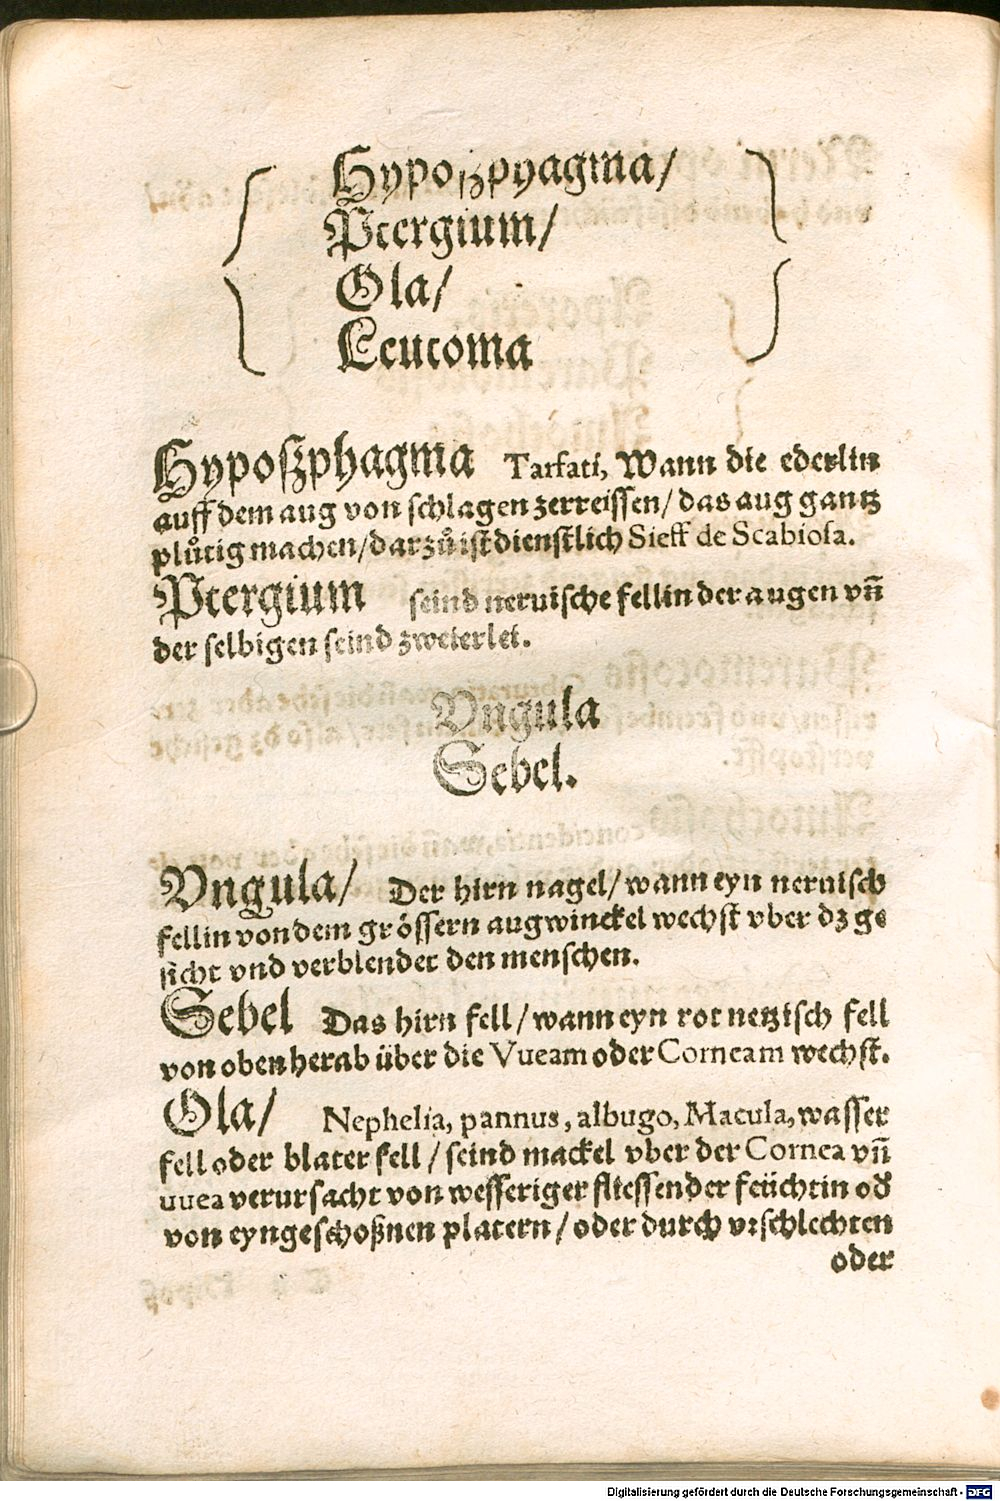 Hypoſzphagma/
Ptergium/
Ola/
Leucoma
Hypoſzphagma Tarfati, Wann die ederlin
auff dem aug von ſchlagen zerreiſſen/ das aug gantz
plůtig machen/ darzů iſt dienſtlich Sieff de Scabioſa.
Ptergium ſeind neruiſche fellin der augen vñ
der ſelbigen ſeind zweierlei.
Vngula
Sebel.
Vngula/ Der hirn nagel/ wann eyn neruiſch
fellin von dem gröſſern augwinckel wechſt vber dz ge
ſicht vnd verblendet den menſchen.
Sebel Das hirn fell/ wann eyn rot netziſch fell
von oben herab über die Vueam oder Corneam wechſt.
Ola/ Nephelia, pannus, albugo, Macula, waſſer
fell oder blater fell/ ſeind mackel vber der Cornea vñ
uuea verurſacht von weſſeriger flieſſender feüchtin od
von eyngeſchoßnen platern/ oder durch vrſchlechten
oder
Digitalisierung gefördert durch die Deutsche Forschungsgemeinschaft - DFG